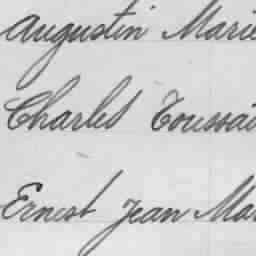 Augustin Marie
Charles Toussai
Ernest Jean Mar